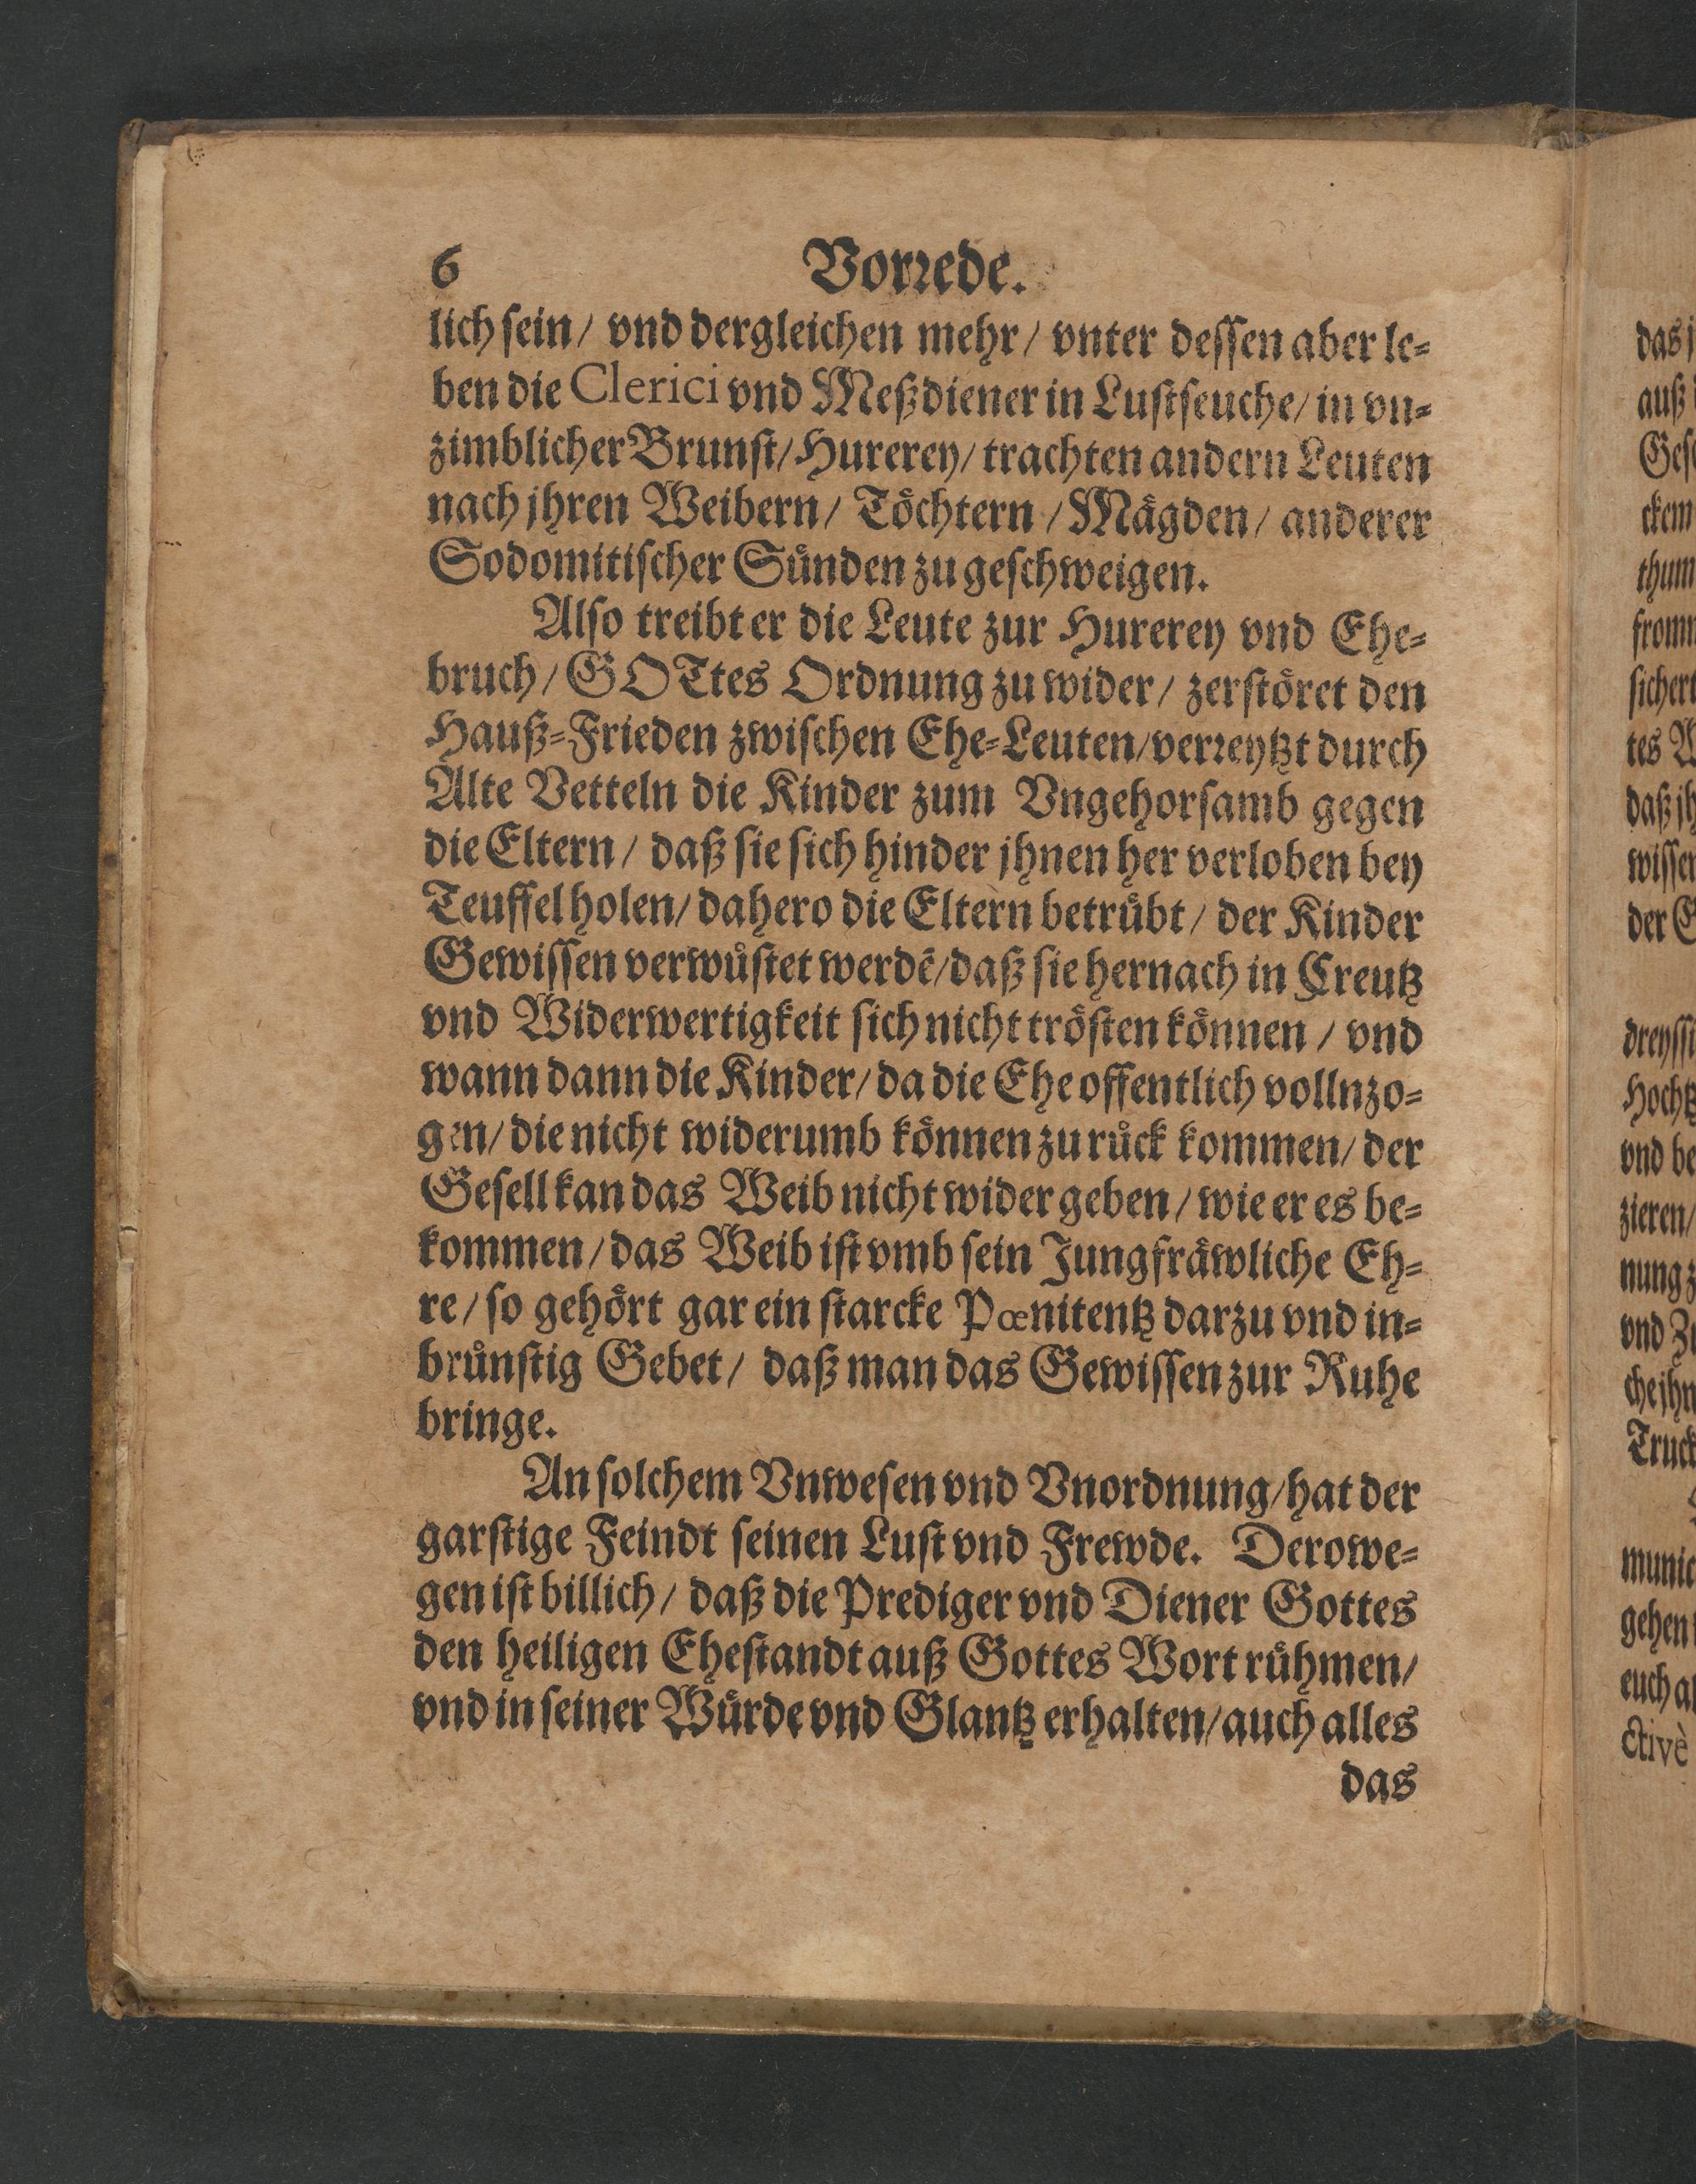 6 Vorrede.
lich sein/ vnd dergleichen mehr/ vnter dessen aber le-
ben die Clerici vnd Meßdiener in Lustseuche/ in vn-
zimblicher Brunst/ Hurerey/ trachten andern Leuten
nach jhren Weibern/ Töchtern / Mägden/ anderer
Sodomitischer Sünden zu geschweigen.
Also treibt er die Leute zur Hurerey vnd Ehe-
bruch/ GOTtes Ordnung zu wider/ zerstöret den
Hauß-Frieden zwischen Ehe-Leuten/ verreytzt durch
Alte Vetteln die Kinder zum Vngehorsamb gegen
die Eltern/ daß sie sich hinder jhnen her verloben bey
Teuffel holen/ dahero die Eltern betrübt/ der Kinder
Gewissen verwüstet werdē/ daß sie hernach in Creutz
vnd Widerwertigkeit sich nicht trösten können / vnd
wann dann die Kinder/ da die Ehe offentlich vollnzo-
gen/ die nicht widerumb können zu rück kommen/ der
Gesell kan das Weib nicht wider geben/ wie er es be-
kommen/ das Weib ist vmb sein Jungfräwliche Eh-
re/ so gehört gar ein starcke Pœnitentz darzu vnd in-
brünstig Gebet/ daß man das Gewissen zur Ruhe
bringe.
An solchem Vnwesen vnd Vnordnung/ hat der
garstige Feindt seinen Lust vnd Frewde. Derowe-
gen ist billich/ daß die Prediger vnd Diener Gottes
den heiligen Ehestandt auß Gottes Wort rühmen/
vnd in seiner Würde vnd Glantz erhalten/ auch alles
das